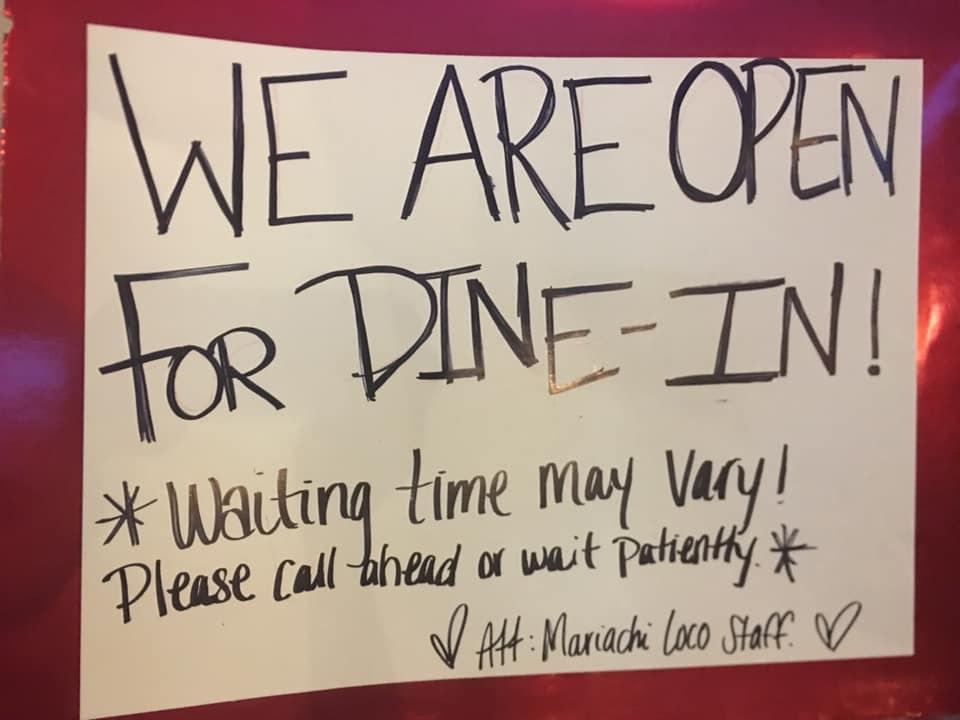 WE ARE OPEN
FOR DINE-IN!
*Waiting time may vary!
Please call ahead or wait patiently.*
♡ Att: Mariachi Loco Staff. ♡